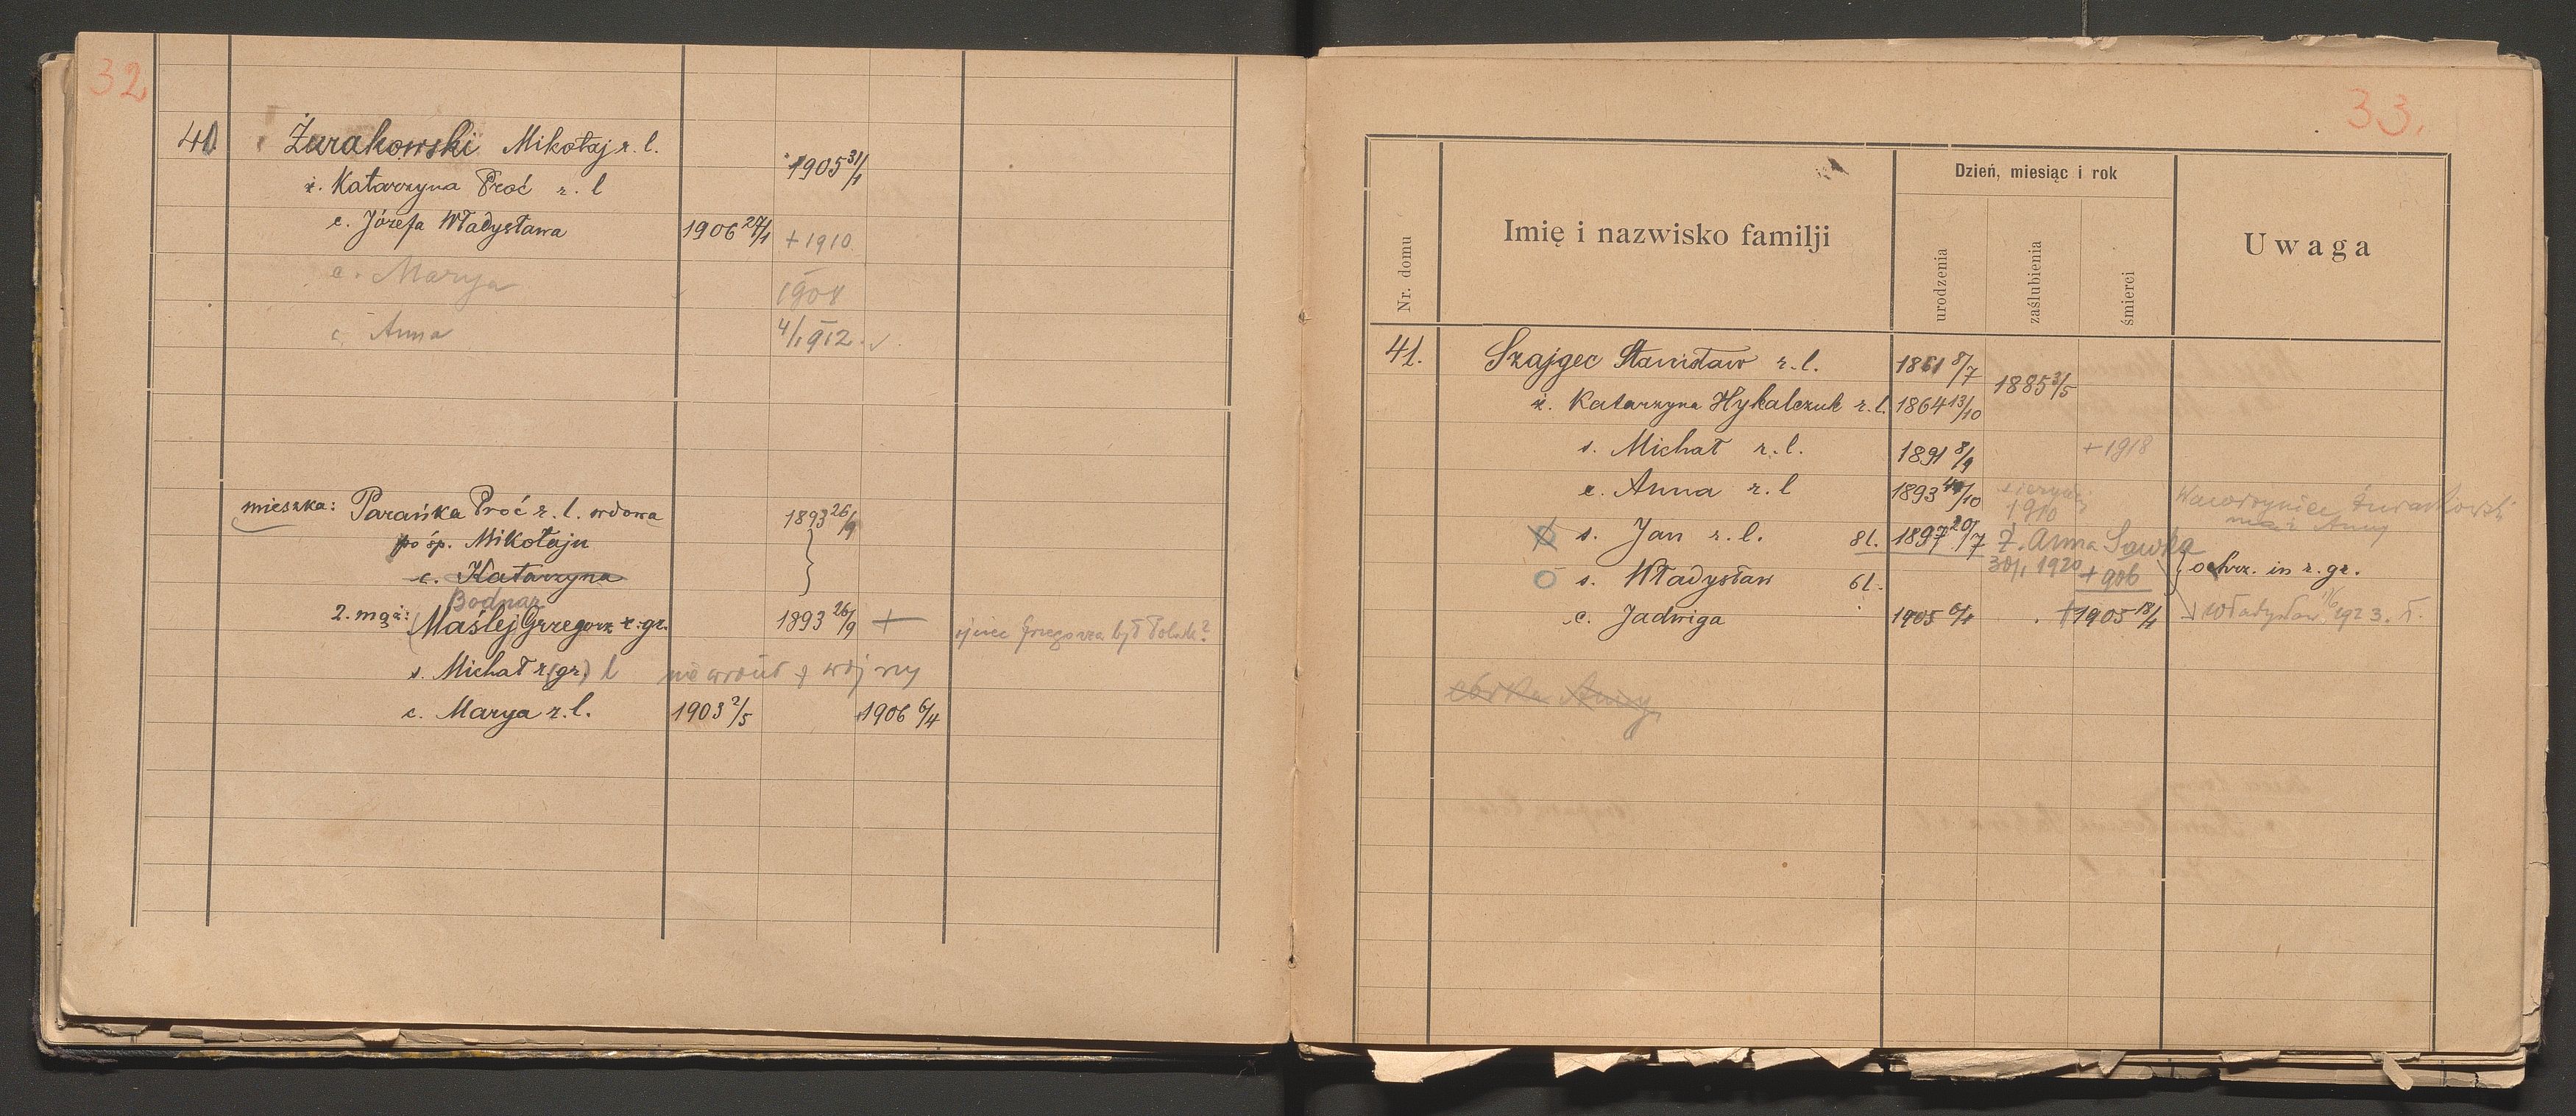 32
40 Żurakowski Mikołaj r. l.
1905 31/1
ż. Katarzyna Proć r. l
c. Józefa Władysława 1906 27/1 + 1910
c. Marya 1908
c. Anna 4/1 912.
mieszka: Parańka Proć r. l. wdowa 1893 26/9
po śp. Mikołaju
c. Katarzyna
Bodnar
2. mąż: Maślej Grzegorz r. gr. 1893 26/9 + ojciec Grzegorza był Polak?
s. Michał r. (gr.) l nie wrócił z wojny
c. Marya r. l. 1903 2/5 1906 6/4
33.
Nr. domu
Imię i nazwisko familji
Dzień, miesiąc i rok
urodzenia
zaślubienia
śmierci
Uwaga
41. Szajgec Stanisław r. l. 1861 8/7
1885 3/5
ż. Katarzyna Hykalczuk r. l. 1864 13/10
s. Michał r. l. 1891 8/9 + 1918
c. Anna r. l 1893 /10 1910 Wawrzyniec Żurakowski
mąż Anny
s. Jan r. l. 8 l. 1897 20/7 Ż. Anna Sawka
30/1 1920
s. Władysław 6 l. + 906 ochrz. in r. gr.
c. Jadwiga 1905 6/1 + 1905 18/1 Władysław
córka Anny